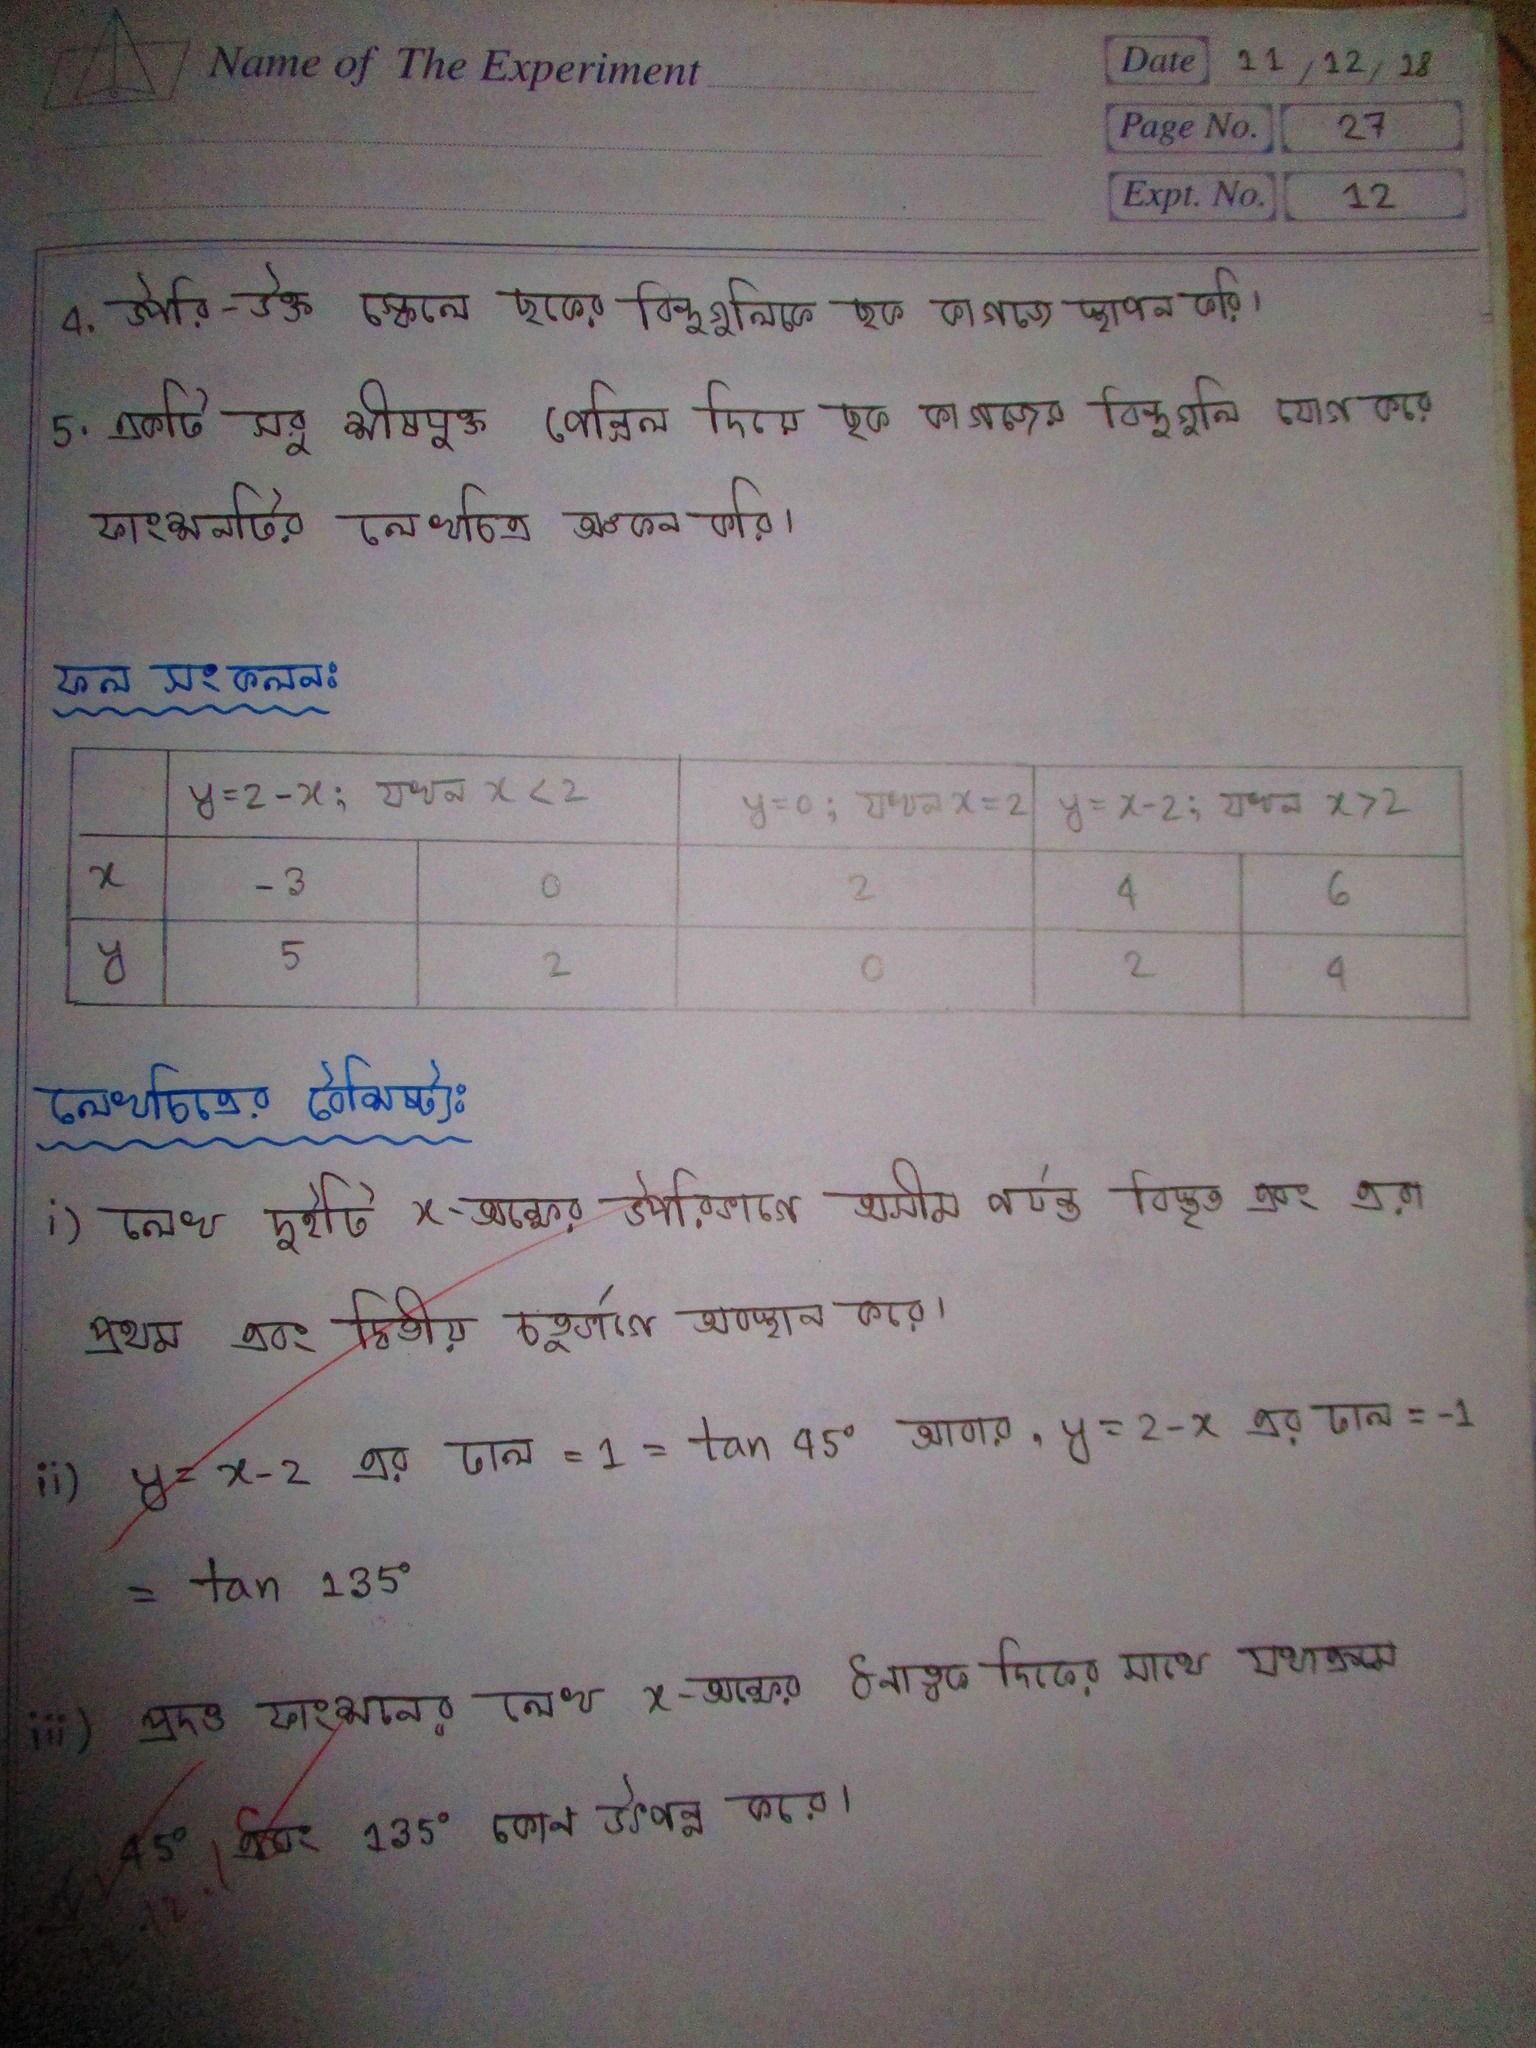 Name of The Experiment
Date 11/12/18
Page No. 27
Expt. No. 12
4. উপরি-উক্ত স্কেলে ছকের বিন্দুগুলিকে ছক কাগজে স্থাপন করি।
5. একটি সরু শীষযুক্ত পেন্সিল দিয়ে ছক কাগজের বিন্দুগুলি যোগ করে
ফাংশনটির লেখচিত্র অঙ্কন করি।
ফল সংকলনঃ
y=2-x; যখন x<2 y=0; যখন x=2 y=x-2; যখন x>2
x -3 0 2 4 6
y 5 2 0 2 4
লেখচিত্রের বৈশিষ্ট্যঃ
i) লেখ দুইটি x-অক্ষের উপরিভাগে অসীম পর্যন্ত বিস্তৃত এবং এরা
প্রথম এবং দ্বিতীয় চতুর্ভাগে অবস্থান করে।
ii) y = x-2 এর ঢাল = 1 = tan 45° আবার, y = 2-x এর ঢাল = -1
= tan 135°
iii) প্রদত্ত ফাংশনের লেখ x-অক্ষের ধনাত্মক দিকের সাথে যথাক্রমে
45° এবং 135° কোন উৎপন্ন করে।